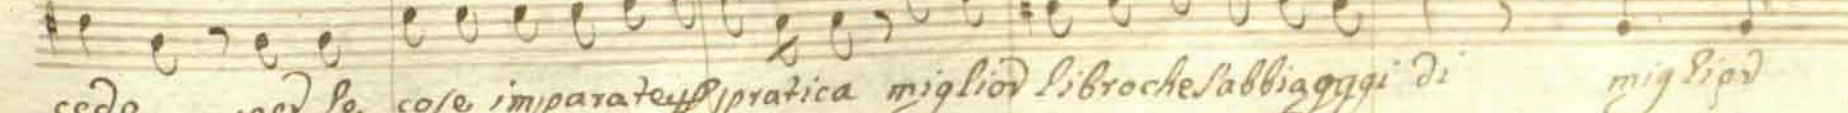 cede per le cose imparate p pratica miglior libro che s'abbia oggi di miglior